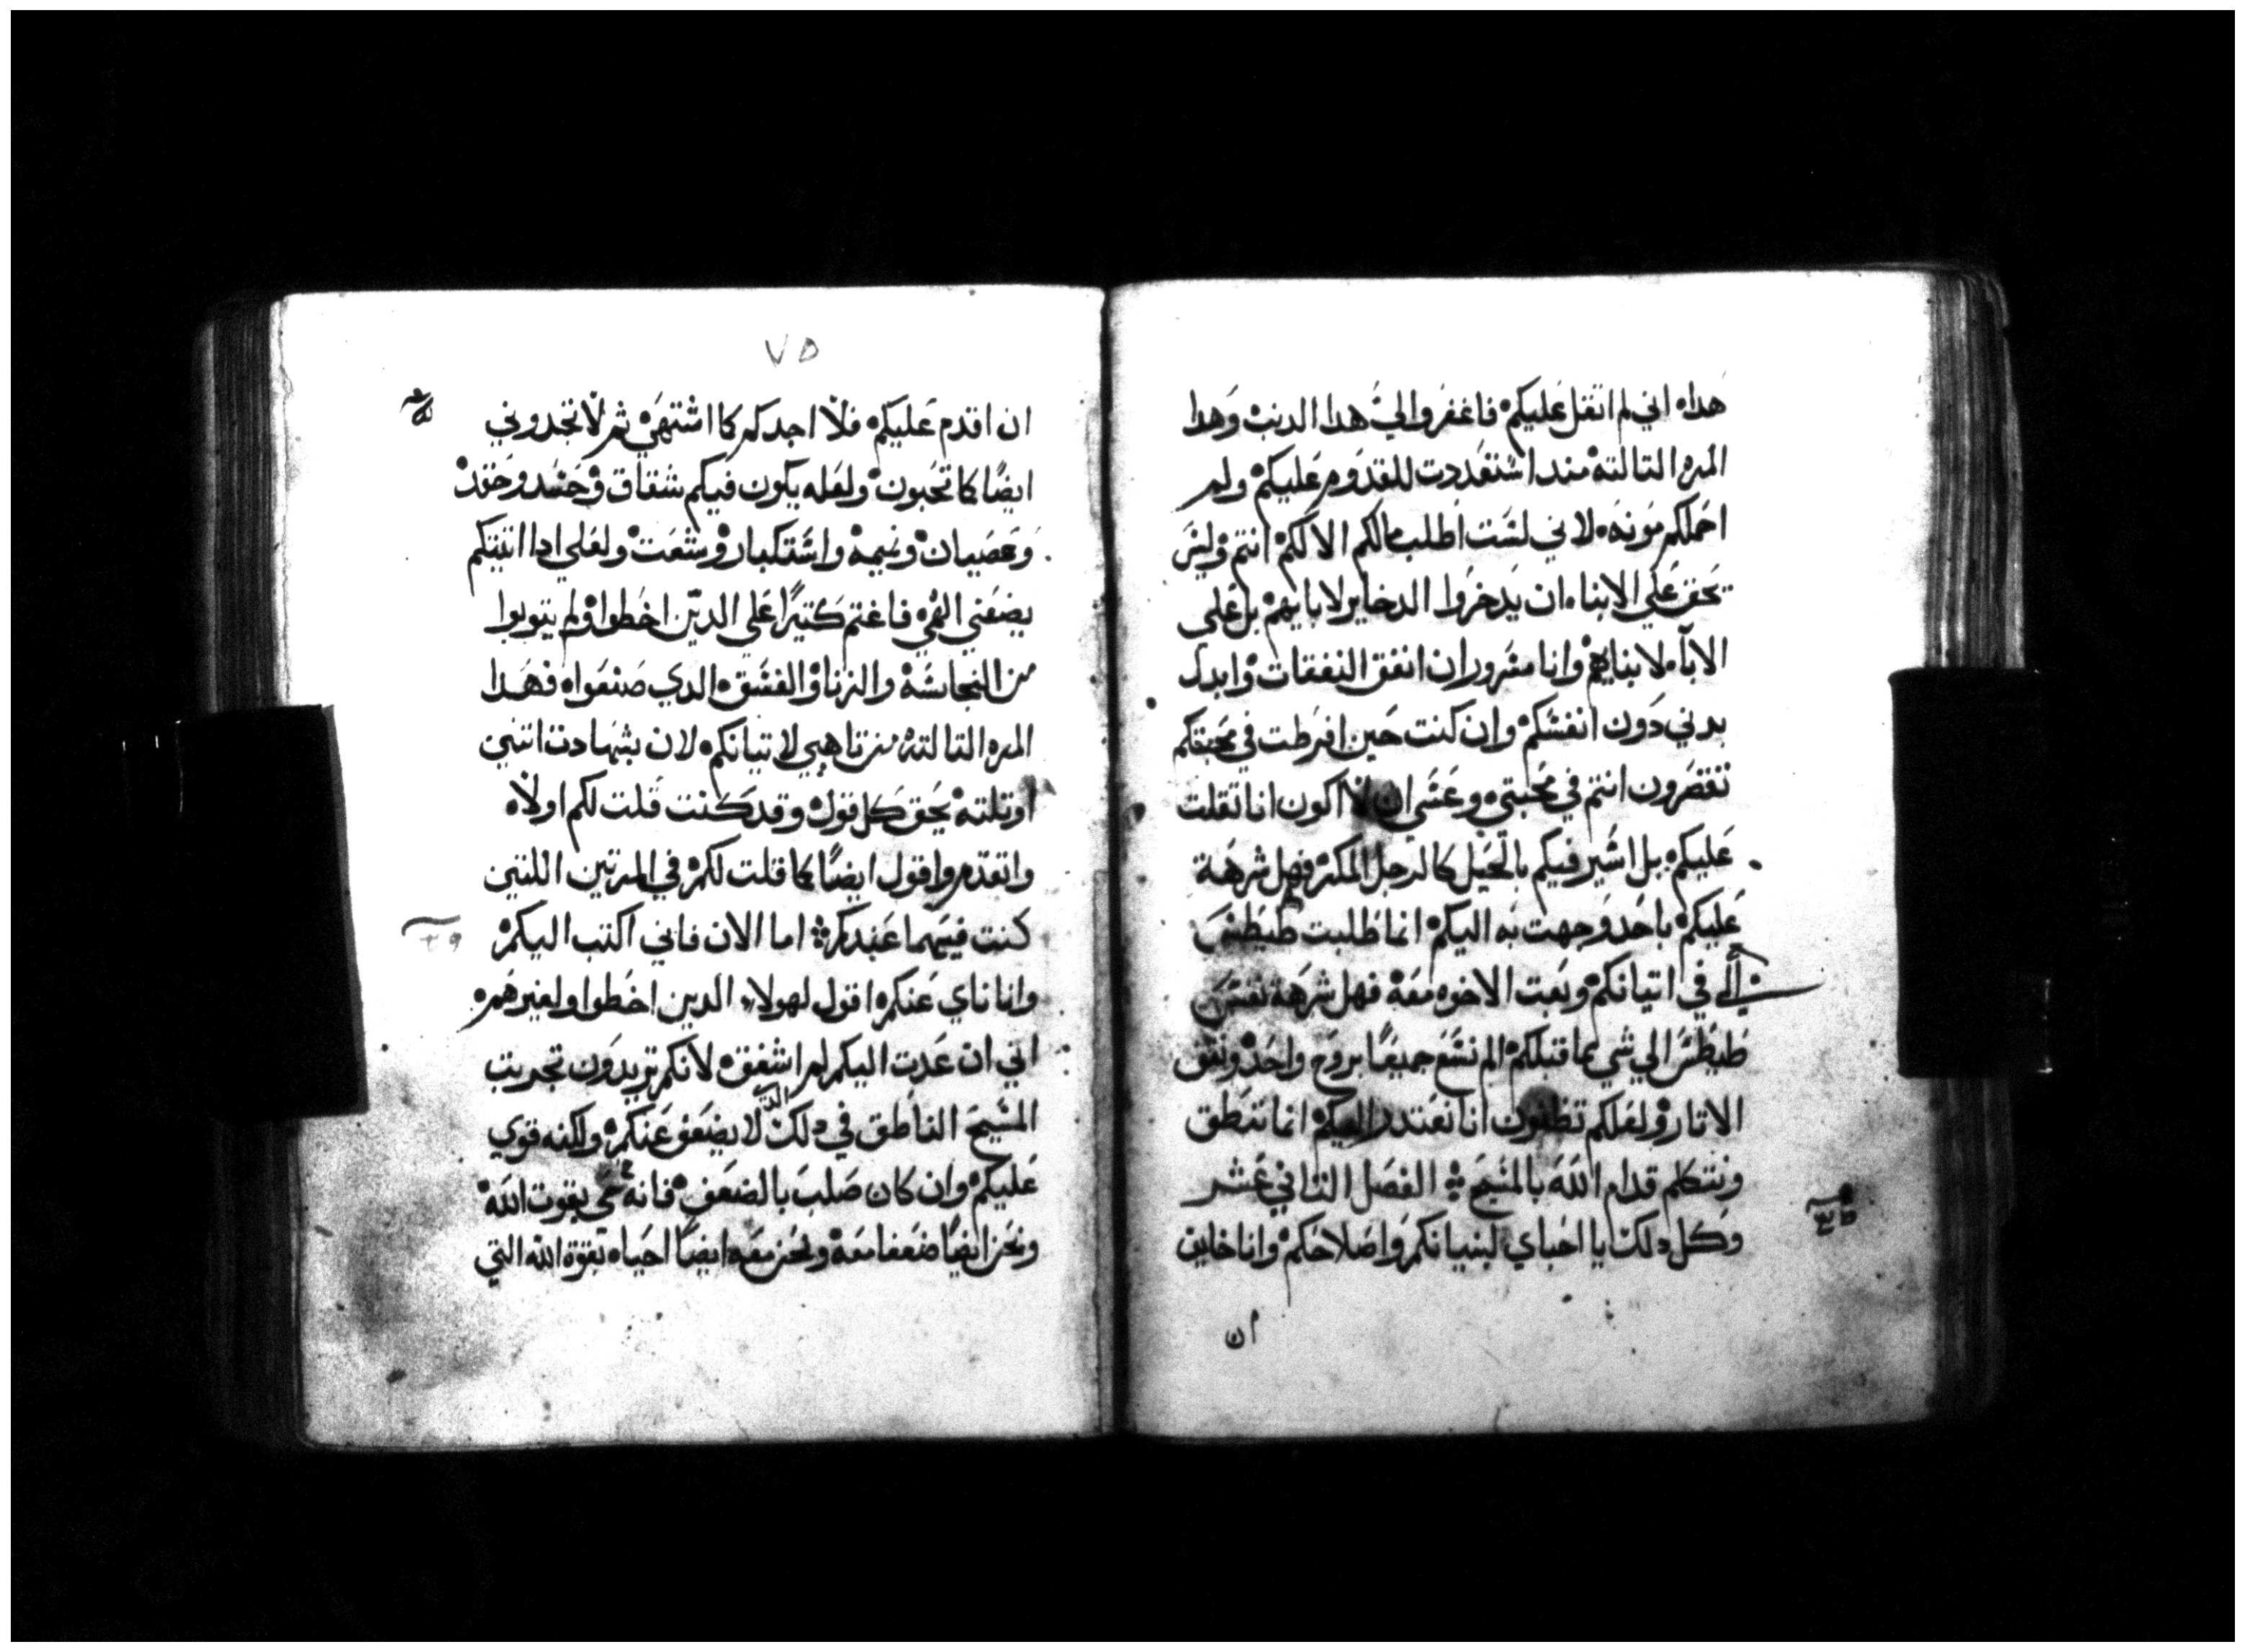 هدا ه اني لم اثقل عليكم فاغفروا لي هدا الدنب وهدا
المره التالته مند استعددت للقدوم عليكم ولم
احملكم مونه ه لاني لست اطلب مالكم الا لكم انتم وليس
يحق علي الابناء ان يدخروا الدخاير لابايهم بل علي
الاباء لابنايهم وانا مسرور ان انفق النفقات وابدل
بدني دون انفسكم وان كنت حين افرطت في محبتكم
تقصرون انتم في محبتي وعسي ان لا اكون انا تقلت
عليكم بل اسير فيكم بالحيل كالرجل المكر فهل شرهة
عليكم باحد وجهت به اليكم انما طلبت طيطس
الي في اتيانكم وبعت الاخوه معه فهل شرهة نفس
طيطس الي شي مما قبلكم الم نسع جميعا بروح واحد ونقف
الاتار ولعلكم تظنون انا نعتدر اليكم انما ننطق
ونتكلم قدام الله بالمسيح الفصل التاني عشر
وكل دلك يا احباي لبنيانكم واصلاحكم وانا خايف
ان
٧٥
ان اقدم عليكم فلا اجدكم كما اشتهي ثم لا تجدوني
ايضا كما تحبون ولعله يكون فيكم شقاق وحسد وحقد
وعصيان ونميمة واستكبار وشغت ولعلي ادا اتيتكم
يضعني الهي فاغتم كتيرا علي الدين اخطوا ولم يتوبوا
من النجاسة والزنا والفسق الدي صنعوا ه فهدا
المره التالته من تاهبي لاتيانكم لان بشهادت اتنين
او تلته يحق كل قول وقد كنت قلت لكم اولا ه
واتقدم واقول ايضا كما قلت لكم في المرتين اللتين
كنت فيهما عندكم اما الان فاني اكتب اليكم
وانا ناي عنكم اقول لهولاء الدين اخطوا ولغيرهم
اني ان عدت اليكم لم اشفق لانكم تريدون تجريب
المسيح الناطق في دلك الدي لا يضعف عنكم ولكنه قوي
عليكم وان كان صلب بالضعف فانه حي بقوت الله
ونحن ايضا ضعفا معه ونحن معه ايضا احياء بقوة الله التي